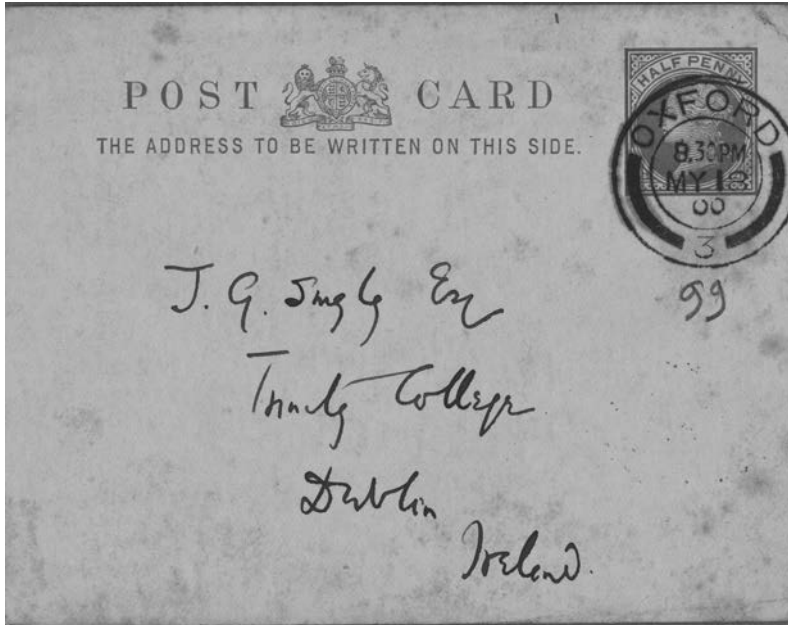 POST CARD
THE ADDRESS TO BE WRITTEN ON THIS SIDE.
HALF PENNY
OXFORD
8.30PM
MY 18
00
3
99
J. G. Smyly Esq
Trinity College
Dublin
Ireland.